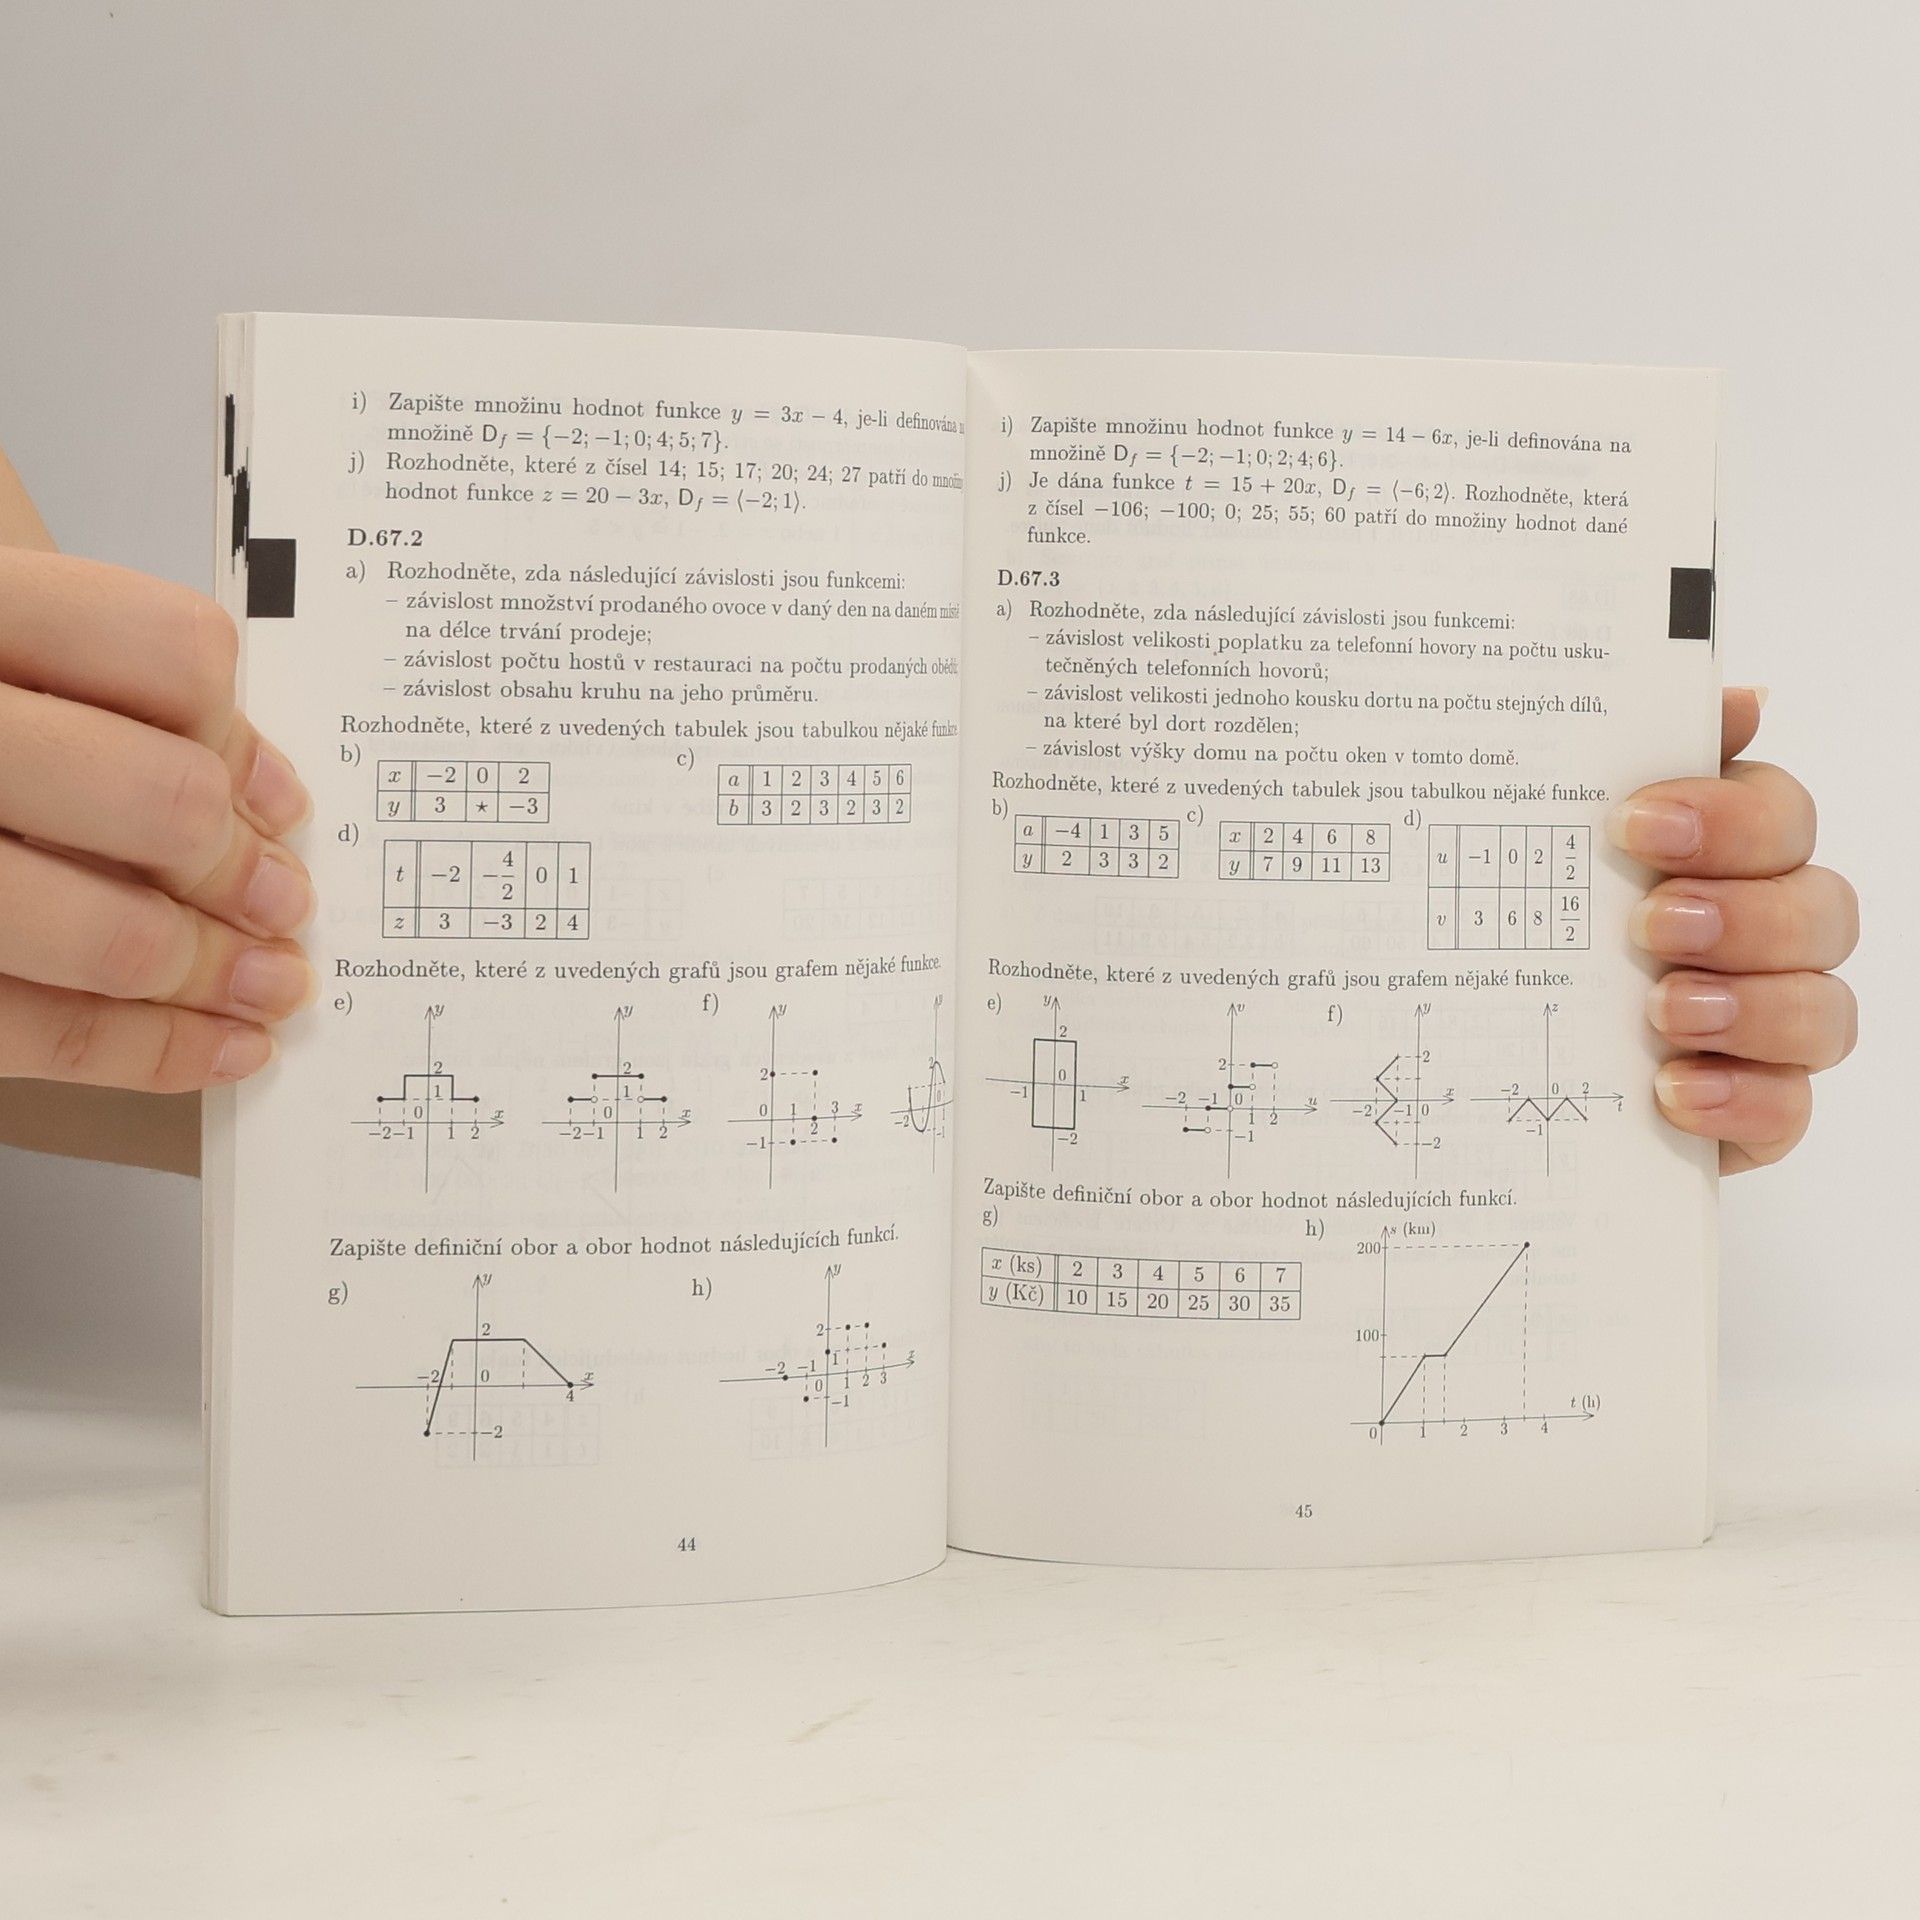 i) Zapište množinu hodnot funkce y = 3x − 4, je-li definována
množině D_f = {−2; −1; 0; 4; 5; 7}.
j) Rozhodněte, které z čísel 14; 15; 17; 20; 24; 27 patří do
hodnot funkce z = 20 − 3x, D_f = ⟨−2; 1⟩.
D.67.2
a) Rozhodněte, zda následující závislosti jsou funkcemi:
– závislost množství prodaného ovoce v daný den na daném místě
na délce trvání prodeje;
– závislost počtu hostů v restauraci na počtu prodaných obědů;
– závislost obsahu kruhu na jeho průměru.
Rozhodněte, které z uvedených tabulek jsou tabulkou nějaké funkce.
b) c)
x −2 0 2
y 3 ⋆ −3
a 1 2 3 4 5 6
b 3 2 3 2 3 2
d)
t −2 −4/2 0 1
z 3 −3 2 4
Rozhodněte, které z uvedených grafů jsou grafem nějaké funkce.
e) f)
y y y y
2 2 2 2
1 1
0 x 0 x 0 1 3 x 0
−2 −1 1 2 −2 −1 1 2 2 −2 1
−1 −1
Zapište definiční obor a obor hodnot následujících funkcí.
g) h)
y y
2 2
−2 0 x −2 −1 1 x
4 0 1 2 3
−2 −1
44
i) Zapište množinu hodnot funkce y = 14 − 6x, je-li definována na
množině D_f = {−2; −1; 0; 2; 4; 6}.
j) Je dána funkce t = 15 + 20x, D_f = ⟨−6; 2⟩. Rozhodněte, která
z čísel −106; −100; 0; 25; 55; 60 patří do množiny hodnot dané
funkce.
D.67.3
a) Rozhodněte, zda následující závislosti jsou funkcemi:
– závislost velikosti poplatku za telefonní hovory na počtu usku-
tečněných telefonních hovorů;
– závislost velikosti jednoho kousku dortu na počtu stejných dílů,
na které byl dort rozdělen;
– závislost výšky domu na počtu oken v tomto domě.
Rozhodněte, které z uvedených tabulek jsou tabulkou nějaké funkce.
b) c) d)
a −4 1 3 5
y 2 3 3 2
x 2 4 6 8
y 7 9 11 13
u −1 0 2 4/2
v 3 6 8 16/2
Rozhodněte, které z uvedených grafů jsou grafem nějaké funkce.
e) f)
y v y z
2 2 2
0 x −2 −1 0 u x −2 0 2 t
−1 1 1 2 −2 −1 0
−1 −1
−2 −2
Zapište definiční obor a obor hodnot následujících funkcí.
g) h)
x (ks) 2 3 4 5 6 7
y (Kč) 10 15 20 25 30 35
s (km)
200
100
t (h)
0 1 2 3 4
45